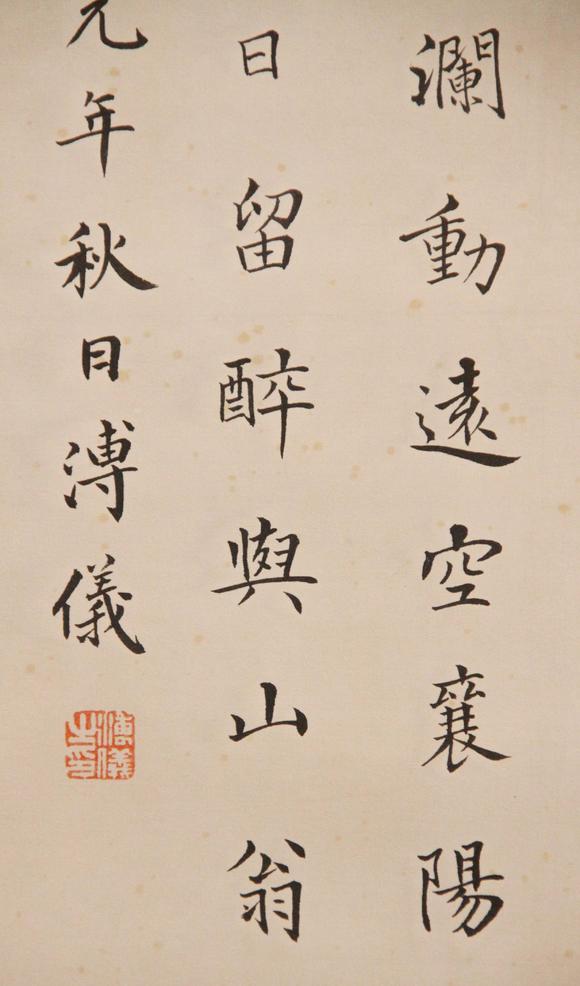 瀾動遠空襄陽
日留醉與山翁
元年秋日溥儀
溥儀之印